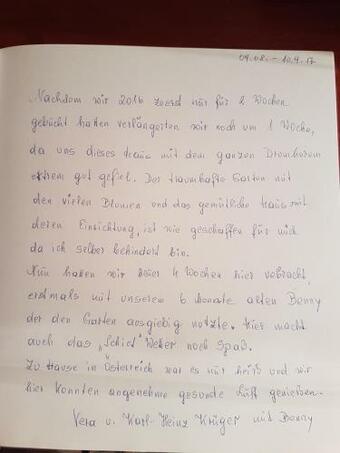 09.08. - 10.9.17
Nachdem wir 2016 zuerst nur für 2 Wochen
gebucht hatten verlängerten wir noch um 1 Woche,
da uns dieses Haus mit dem ganzen Drumherum
extrem gut gefiel. Der traumhafte Garten mit
den vielen Blumen und das gemütliche Haus mit
deren Einrichtung, ist wie geschaffen für mich
da ich selber behindert bin.
Nun haben wir hier 4 Wochen hier verbracht,
erstmals mit unserem 6 Monate alten Benny
der den Garten ausgiebig nutzte. Hier macht
auch das Wetter noch Spaß.
Zu Hause in Österreich war es nur heiß und wir
hier konnten angenehme gesunde Luft genießen.
Vera u. Karl-Heinz Krüger mit Benny